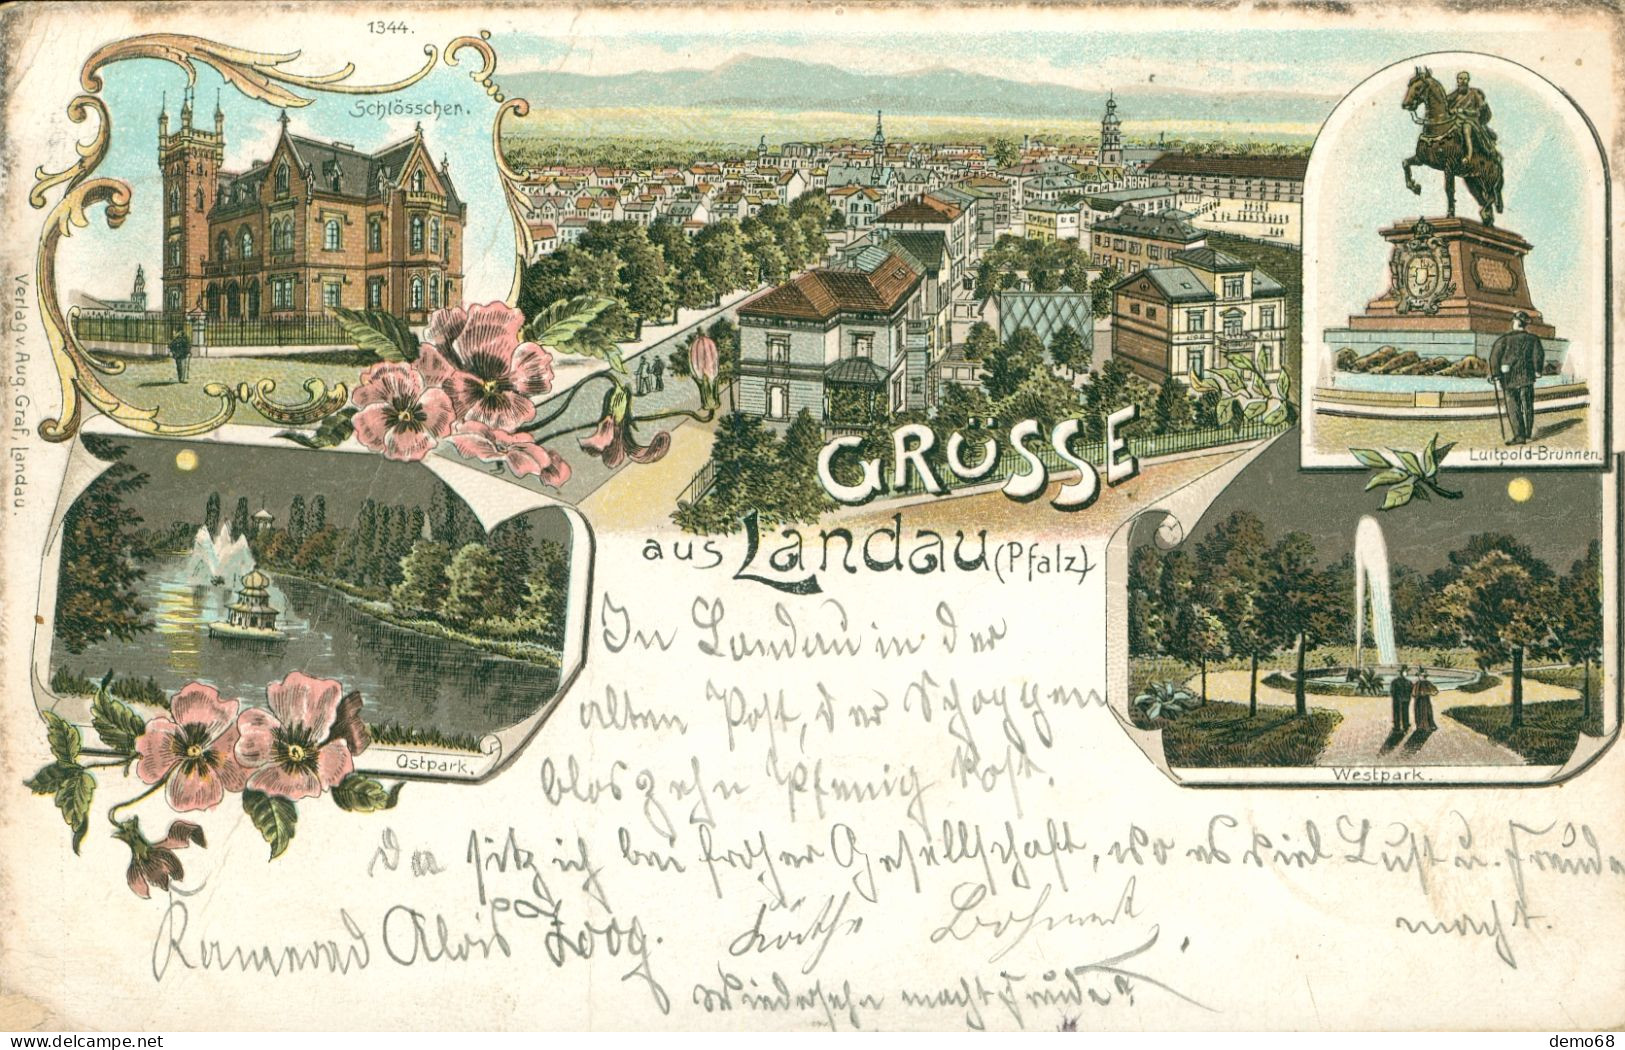 1344.
Schlösschen.
Verlag v. Aug. Graf, Landau.
Luitpold-Brunnen.
GRÜSSE
aus Landau (Pfalz)
Ostpark.
Westpark.
In Landau in der
alten Post, der Schoppen
blos zehn Pfennig kost.
Da sitz ich bei froher Gesellschaft, wo es viel Lust u. Freude
macht.
Kamerad Alois Zoog. Käthe
Wiedersehn macht Freude
delcampe.net
demo68